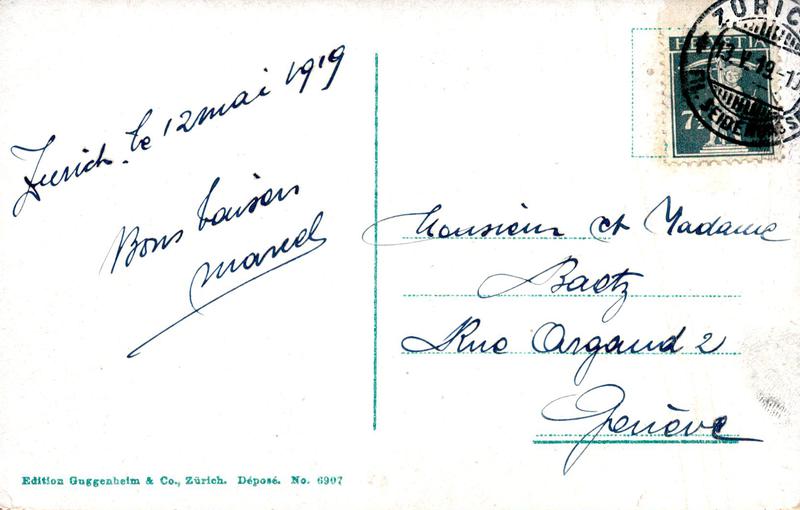 Zurich le 12 mai 1919
Bons baisers
Marcel
Monsieur et Madame
Baetz
Rue Argand 2
Genève
HELVETIA
7½
ZÜRICH
13.V.19.-1
Fil. SEIDENG
Edition Guggenheim & Co., Zürich. Déposé. No. 6907